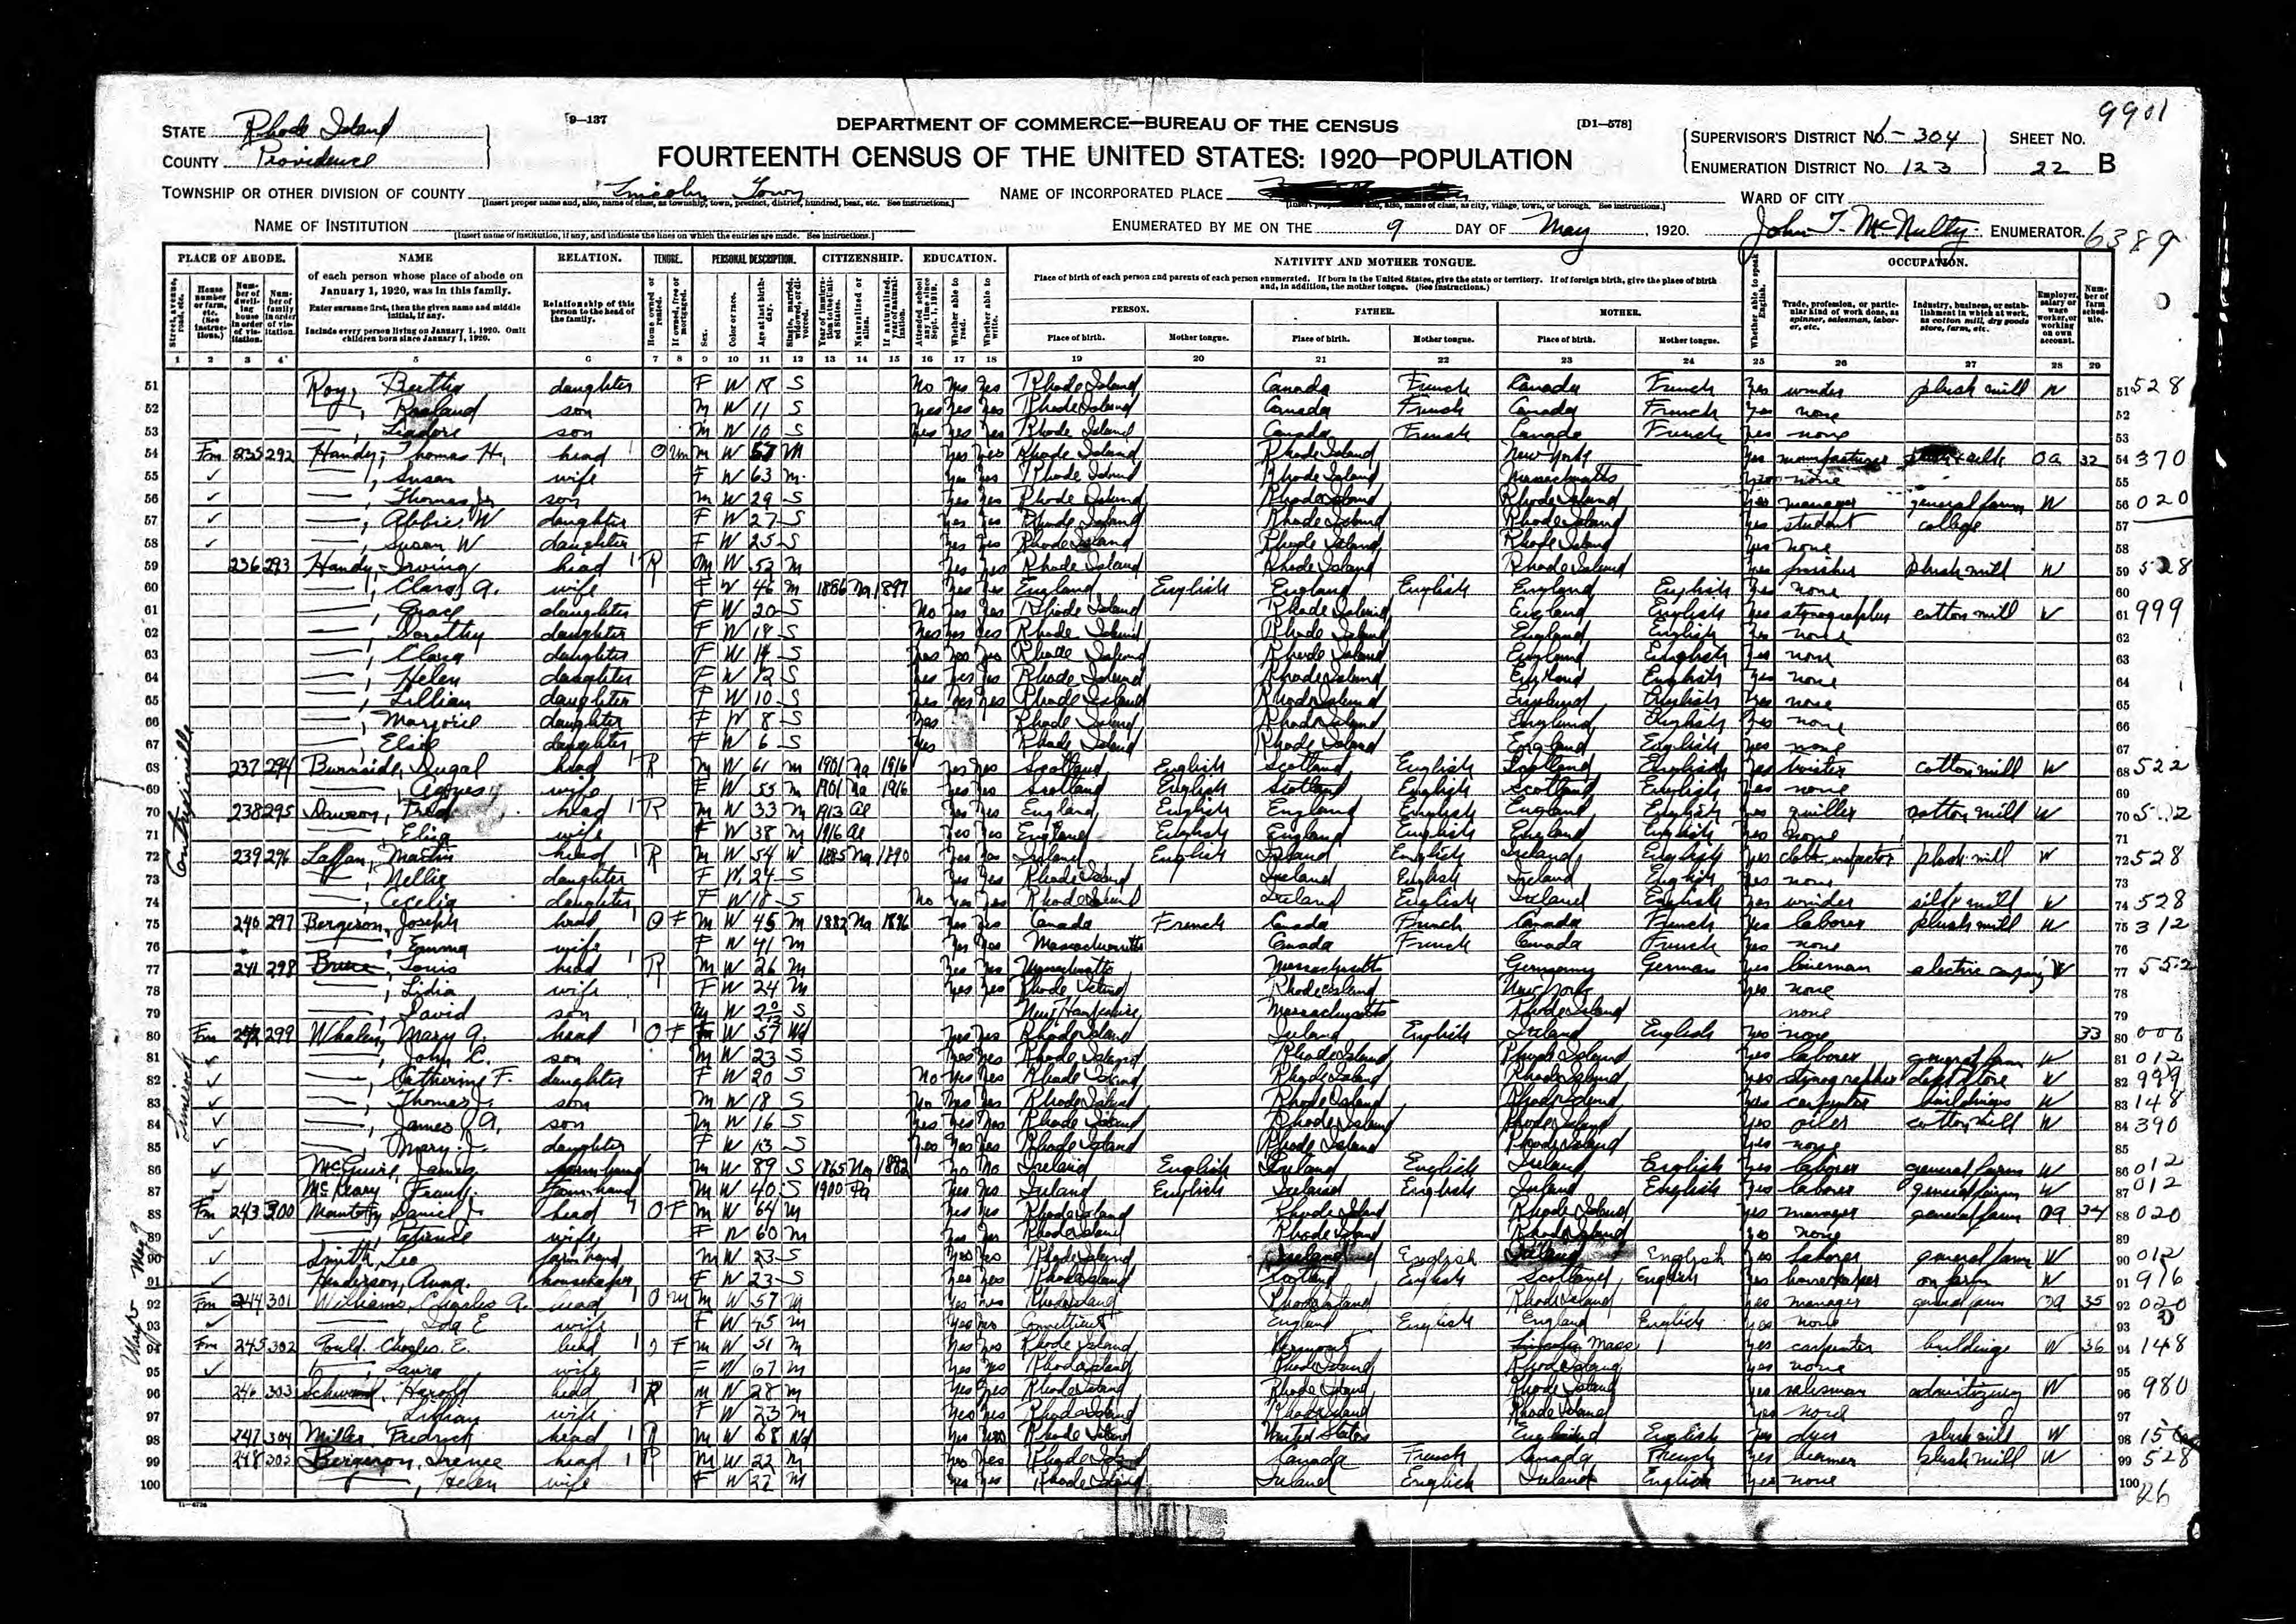 9901
STATE Rhode Island
9—137
DEPARTMENT OF COMMERCE—BUREAU OF THE CENSUS
[D1—578]
SUPERVISOR'S DISTRICT No. 1-304 SHEET No.
COUNTY Providence
FOURTEENTH CENSUS OF THE UNITED STATES: 1920—POPULATION
ENUMERATION DISTRICT No. 123 22 B
TOWNSHIP OR OTHER DIVISION OF COUNTY Lincoln Town
NAME OF INCORPORATED PLACE
WARD OF CITY
[Insert proper name and, also, name of class, as township, town, precinct, district, hundred, beat, etc. See instructions.]
NAME OF INSTITUTION
ENUMERATED BY ME ON THE 9 DAY OF May, 1920. John T. McNulty ENUMERATOR. 6389
[Insert name of institution, if any, and indicate the lines on which the entries are made. See instructions.]
PLACE OF ABODE. NAME RELATION. TENURE. PERSONAL DESCRIPTION. CITIZENSHIP. EDUCATION. NATIVITY AND MOTHER TONGUE. OCCUPATION.
of each person whose place of abode on January 1, 1920, was in this family.
Enter surname first, then the given name and middle initial, if any.
Include every person living on January 1, 1920. Omit children born since January 1, 1920.
Relationship of this person to the head of the family.
Place of birth of each person and parents of each person enumerated. If born in the United States, give the state or territory. If of foreign birth, give the place of birth and, in addition, the mother tongue. (See instructions.)
PERSON. FATHER. MOTHER.
Place of birth. Mother tongue. Place of birth. Mother tongue. Place of birth. Mother tongue.
1 2 3 4 5 6 7 8 9 10 11 12 13 14 15 16 17 18 19 20 21 22 23 24 25 26 27 28 29
51 Roy, Bertha daughter F W 18 S No Yes Yes Rhode Island Canada French Canada French Yes winder plush mill W 51 528
52 son M W 11 S Yes Yes Yes Rhode Island Canada French Canada French Yes none 52
53 son M W 10 S Yes Yes Yes Rhode Island Canada French Canada French Yes none 53
54 Fm 235 292 Handy, Thomas H. head O M W M Yes Yes Rhode Island Rhode Island New York Yes manufacturer OA 32 54 370
55 Susan wife F W 63 M Yes Yes Rhode Island Rhode Island Massachusetts none 55
56 Thomas Jr son M W 29 S Yes Yes Rhode Island Rhode Island Rhode Island Yes manager general farm W 56 020
57 Abbie W daughter F W 27 S Yes Yes Rhode Island Rhode Island Rhode Island Yes student college 57
58 Susan W daughter F W 25 S Yes Yes Rhode Island Rhode Island Rhode Island Yes none 58
59 236 293 Handy, Irving head R M W 52 M Yes Yes Rhode Island Rhode Island Rhode Island Yes finisher plush mill W 59 528
60 Clara A. wife F W 46 M 1886 Na 1897 Yes Yes England English England English England English Yes none 60
61 Grace daughter F W 20 S No Yes Yes Rhode Island Rhode Island England English Yes stenographer cotton mill W 61 999
62 Dorothy daughter F W 18 S Yes Yes Yes Rhode Island Rhode Island England English Yes none 62
63 Clara daughter F W 14 S Yes Yes Yes Rhode Island Rhode Island England English Yes none 63
64 Helen daughter F W 12 S Yes Yes Yes Rhode Island Rhode Island England English Yes none 64
65 Lillian daughter F W 10 S Yes Yes Yes Rhode Island Rhode Island England English Yes none 65
66 Marjorie daughter F W 8 S Yes Rhode Island Rhode Island England English Yes none 66
67 Elsie daughter F W 6 S Yes Rhode Island Rhode Island England English Yes none 67
68 237 294 Burnside, Dugal head R M W 61 M 1901 Na 1916 Yes Yes Scotland English Scotland English Scotland English Yes twister cotton mill W 68 522
69 Agnes wife F W 55 M 1901 Na 1916 Yes Yes Scotland English Scotland English Scotland English Yes none 69
70 238 295 Dawson, Fred head R M W 33 M 1913 Al Yes Yes England English England English England English Yes quiller cotton mill W 70
71 Eliza wife F W 38 M 1916 Al Yes Yes England English England English England English Yes none 71
72 239 296 Laffan, Martin head R M W 54 W 1885 Na 1890 Yes Yes Ireland English Ireland English Ireland English Yes cloth inspector plush mill W 72 528
73 Nellie daughter F W 24 S Yes Yes Rhode Island Ireland English Ireland English Yes none 73
74 Cecelia daughter F W 18 S No Yes Yes Rhode Island Ireland English Ireland English Yes winder silk mill W 74 528
75 240 297 Bergeron, Joseph head O F M W 45 M 1882 Na 1896 Yes Yes Canada French Canada French Canada French Yes laborer plush mill W 75 312
76 Emma wife F W 41 M Yes Yes Massachusetts Canada French Canada French Yes none 76
77 241 298 Louis head R M W 26 M Yes Yes Massachusetts Massachusetts Germany German Yes lineman electric company W 77 552
78 Lidia wife F W 24 M Yes Yes Rhode Island Rhode Island New York Yes none 78
79 David son M W S New Hampshire Massachusetts Rhode Island none 79
80 Fm 242 299 Whalen, Mary A. head O F F W 57 Wd Yes Yes Rhode Island Ireland English Ireland English Yes none 33 80
81 John C. son M W 23 S Yes Yes Rhode Island Rhode Island Rhode Island Yes laborer general farm W 81 012
82 Catherine F. daughter F W 20 S No Yes Yes Rhode Island Rhode Island Rhode Island Yes stenographer dept store W 82 999
83 Thomas J. son M W 18 S No Yes Yes Rhode Island Rhode Island Rhode Island Yes carpenter buildings W 83 148
84 James A. son M W 16 S Yes Yes Yes Rhode Island Rhode Island Rhode Island Yes oiler cotton mill W 84 390
85 Mary J. daughter F W 13 S Yes Yes Yes Rhode Island Rhode Island Rhode Island Yes none 85
86 McGuire, James farm hand M W 89 S 1865 Na 1882 No No Ireland English Ireland English Ireland English Yes laborer general farm W 86 012
87 Frank farm hand M W 40 S 1900 Pa Yes Yes Ireland English Ireland English Ireland English Yes laborer general farm W 87 012
88 Fm 243 300 Daniel J. head O F M W 64 M Yes Yes Rhode Island Rhode Island Rhode Island Yes manager general farm OA 34 88 020
89 Patience wife F W 60 M Yes Yes Rhode Island Rhode Island Rhode Island Yes none 89
90 Smith, Leo farm hand M W 23 S Yes Yes Rhode Island Ireland English Ireland English Yes laborer general farm W 90 012
91 Henderson, Anna housekeeper F W 23 S Yes Yes Rhode Island Scotland English Scotland English Yes housekeeper on farm W 91 916
92 Fm 244 301 Williams, Charles A. head O M M W 57 M Yes Yes Rhode Island Rhode Island Rhode Island Yes manager general farm OA 35 92 020
93 Ida E wife F W 45 M Yes Connecticut England English England English Yes none 93
94 Fm 245 302 Gould, Charles E. head O F M W 51 M Yes Yes Rhode Island Vermont Mass Yes carpenter buildings W 36 94 148
95 Laura wife F W 67 M Yes Yes Rhode Island Rhode Island Rhode Island Yes none 95
96 246 303 Harold head R M W 28 M Yes Yes Rhode Island Rhode Island Rhode Island Yes salesman advertizing W 96 980
97 Lillian wife F W 23 M Yes Yes Rhode Island Rhode Island Rhode Island Yes none 97
98 247 304 Miller, Fredrick head R M W 68 Wd Yes Yes Rhode Island United States England English Yes dyer plush mill W 98
99 248 305 Bergeron, Irenee head R M W 22 M Yes Yes Rhode Island Canada French Canada French Yes beamer plush mill W 99 528
100 Helen wife F W 22 M Yes Yes Rhode Island Ireland English Ireland English Yes none 100